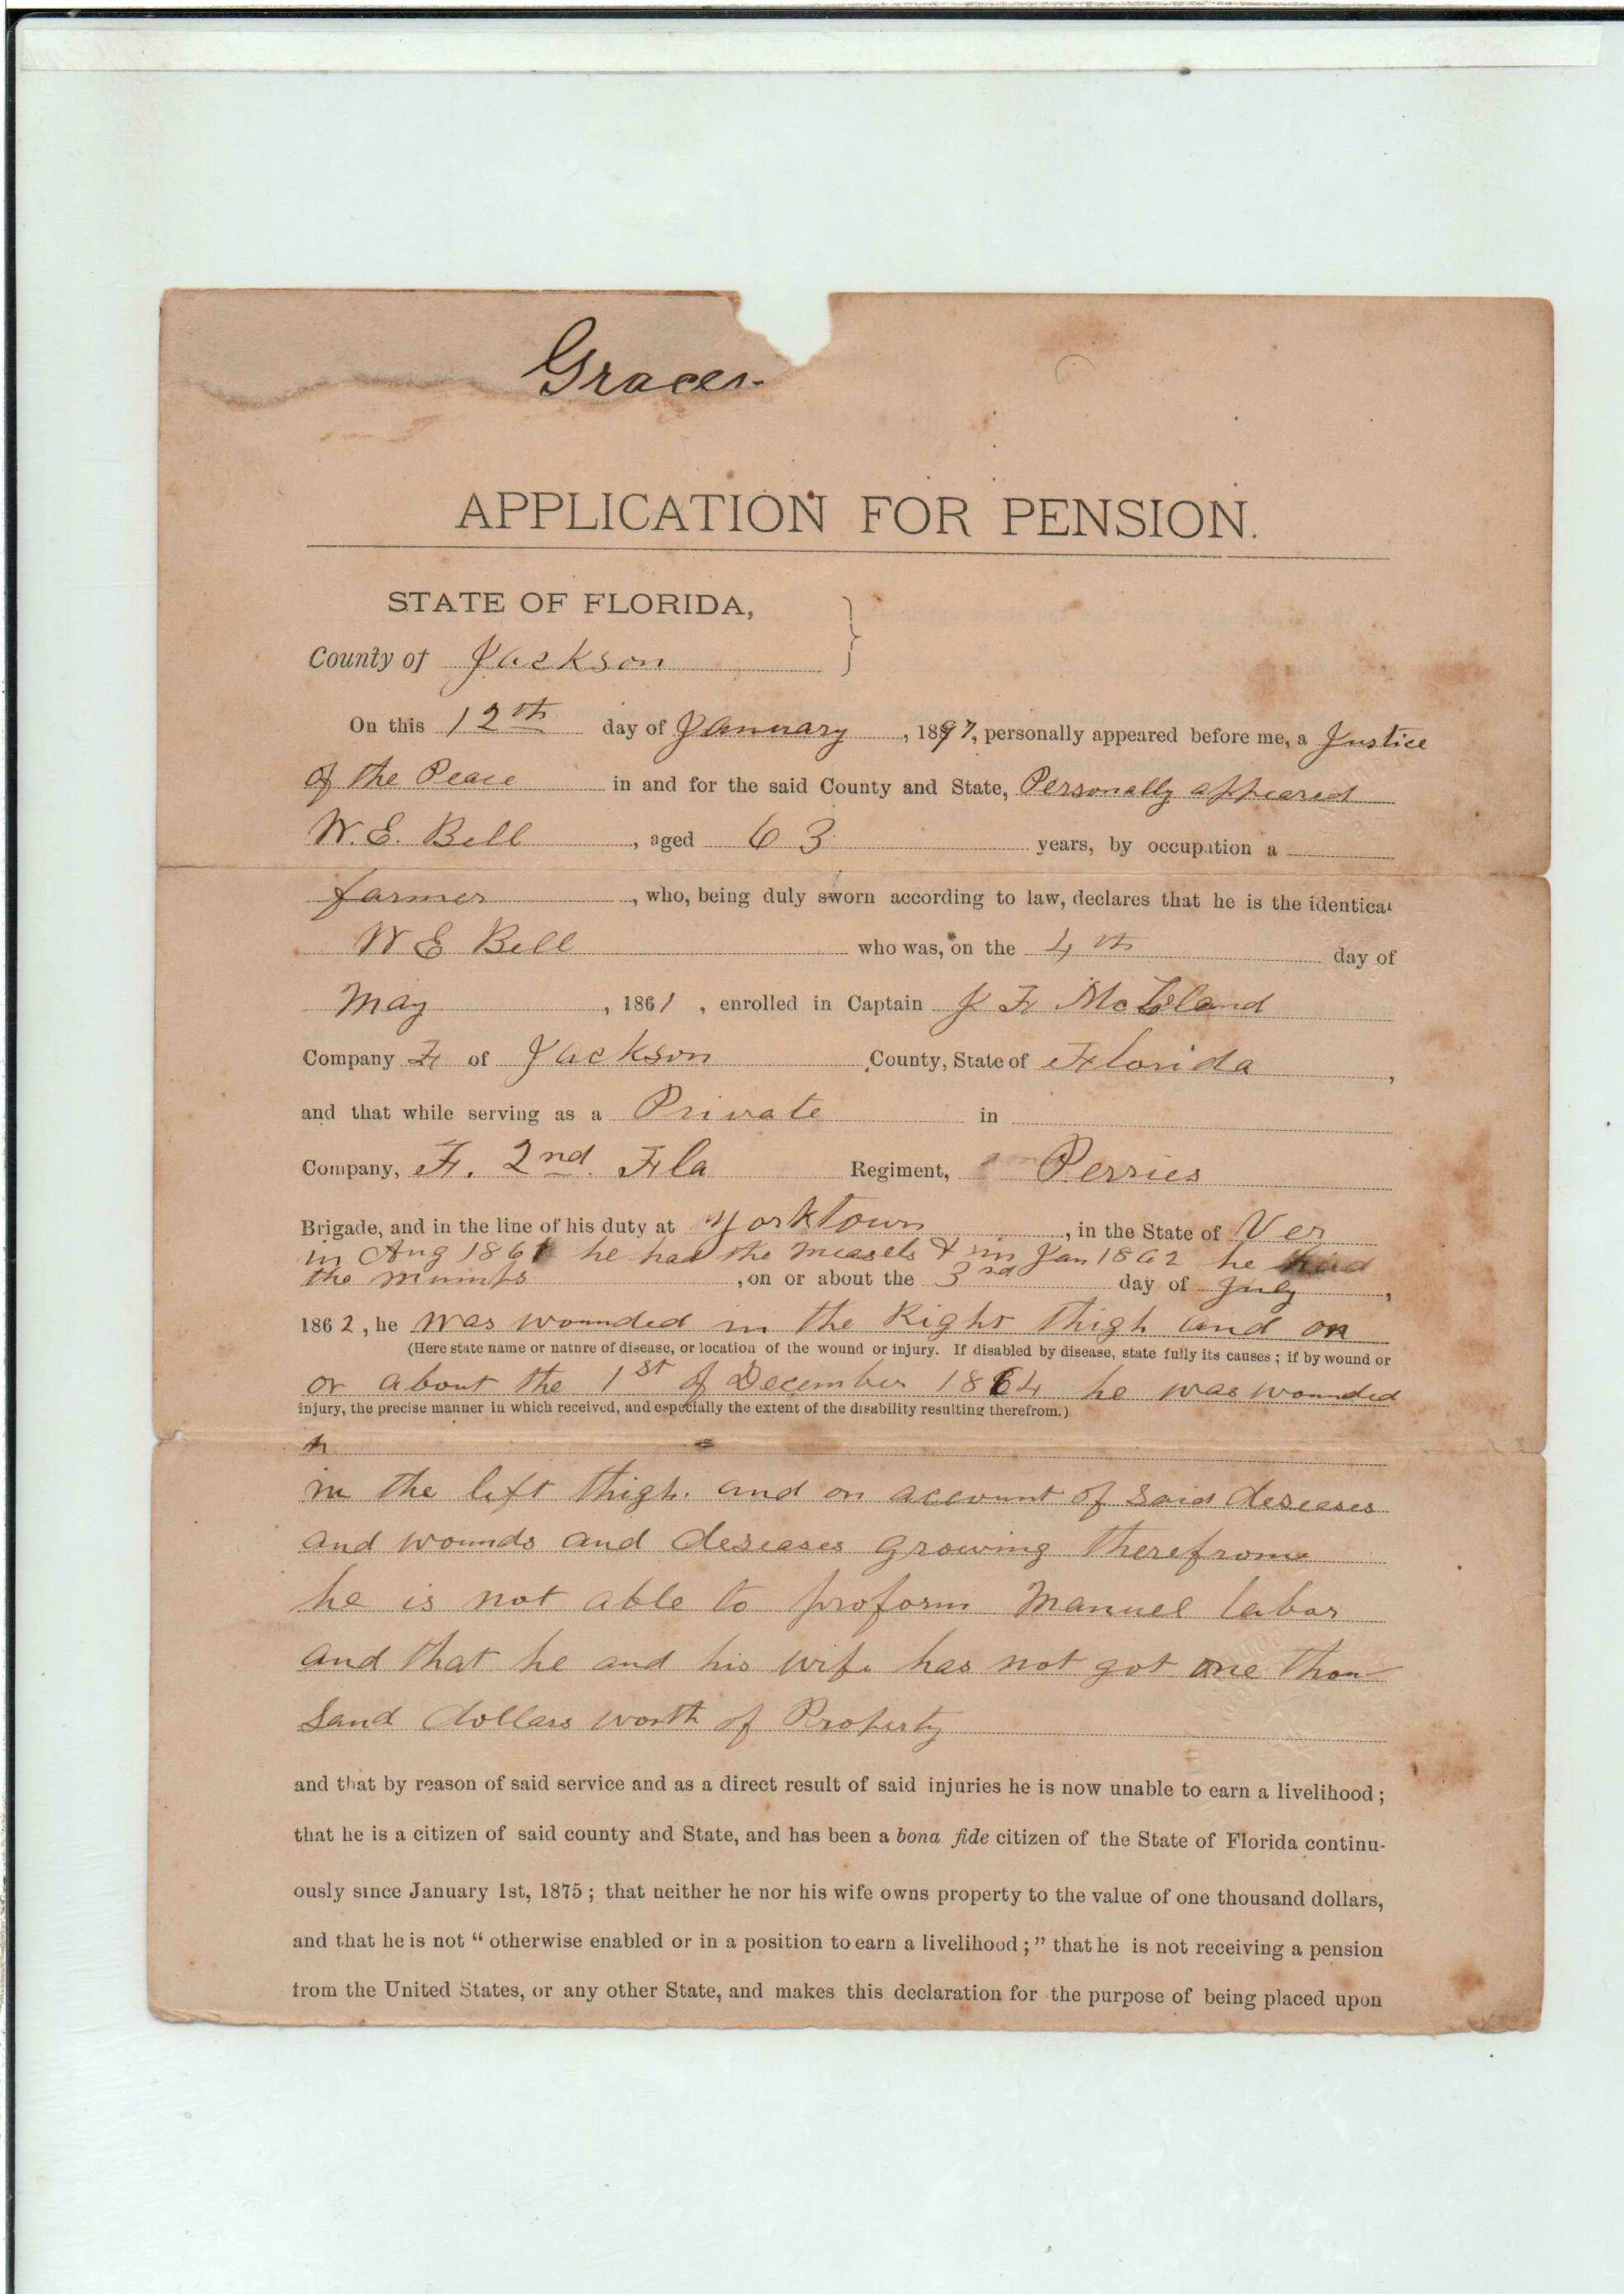 Graces.
APPLICATION FOR PENSION.
STATE OF FLORIDA,
County of Jackson
On this 12th day of January, 1897, personally appeared before me, a Justice
of the Peace in and for the said County and State, Personally appeared
W. E. Bell, aged 63 years, by occupation a
farmer, who, being duly sworn according to law, declares that he is the identical
W E Bell who was, on the 4th day of
May, 1861, enrolled in Captain J F McCleland
Company F of Jackson County, State of Florida,
and that while serving as a Private in
Company, F. 2nd Fla Regiment, Perries
Brigade, and in the line of his duty at yorktown, in the State of Ver
in Aug 1861 he had the measels & in Jan 1862 he had
the mumps, on or about the 3rd day of July,
1862, he was wounded in the Right thigh and on
(Here state name or nature of disease, or location of the wound or injury. If disabled by disease, state fully its causes; if by wound or
or about the 1st of December 1864 he was wounded
injury, the precise manner in which received, and especially the extent of the disability resulting therefrom.)
in the left thigh. and on account of said deseases
and wounds and deseases growing therefrom
he is not able to proform manuel labor
and that he and his wife has not got one thou
sand dollars worth of Property
and that by reason of said service and as a direct result of said injuries he is now unable to earn a livelihood;
that he is a citizen of said county and State, and has been a bona fide citizen of the State of Florida continu-
ously since January 1st, 1875; that neither he nor his wife owns property to the value of one thousand dollars,
and that he is not "otherwise enabled or in a position to earn a livelihood;" that he is not receiving a pension
from the United States, or any other State, and makes this declaration for the purpose of being placed upon